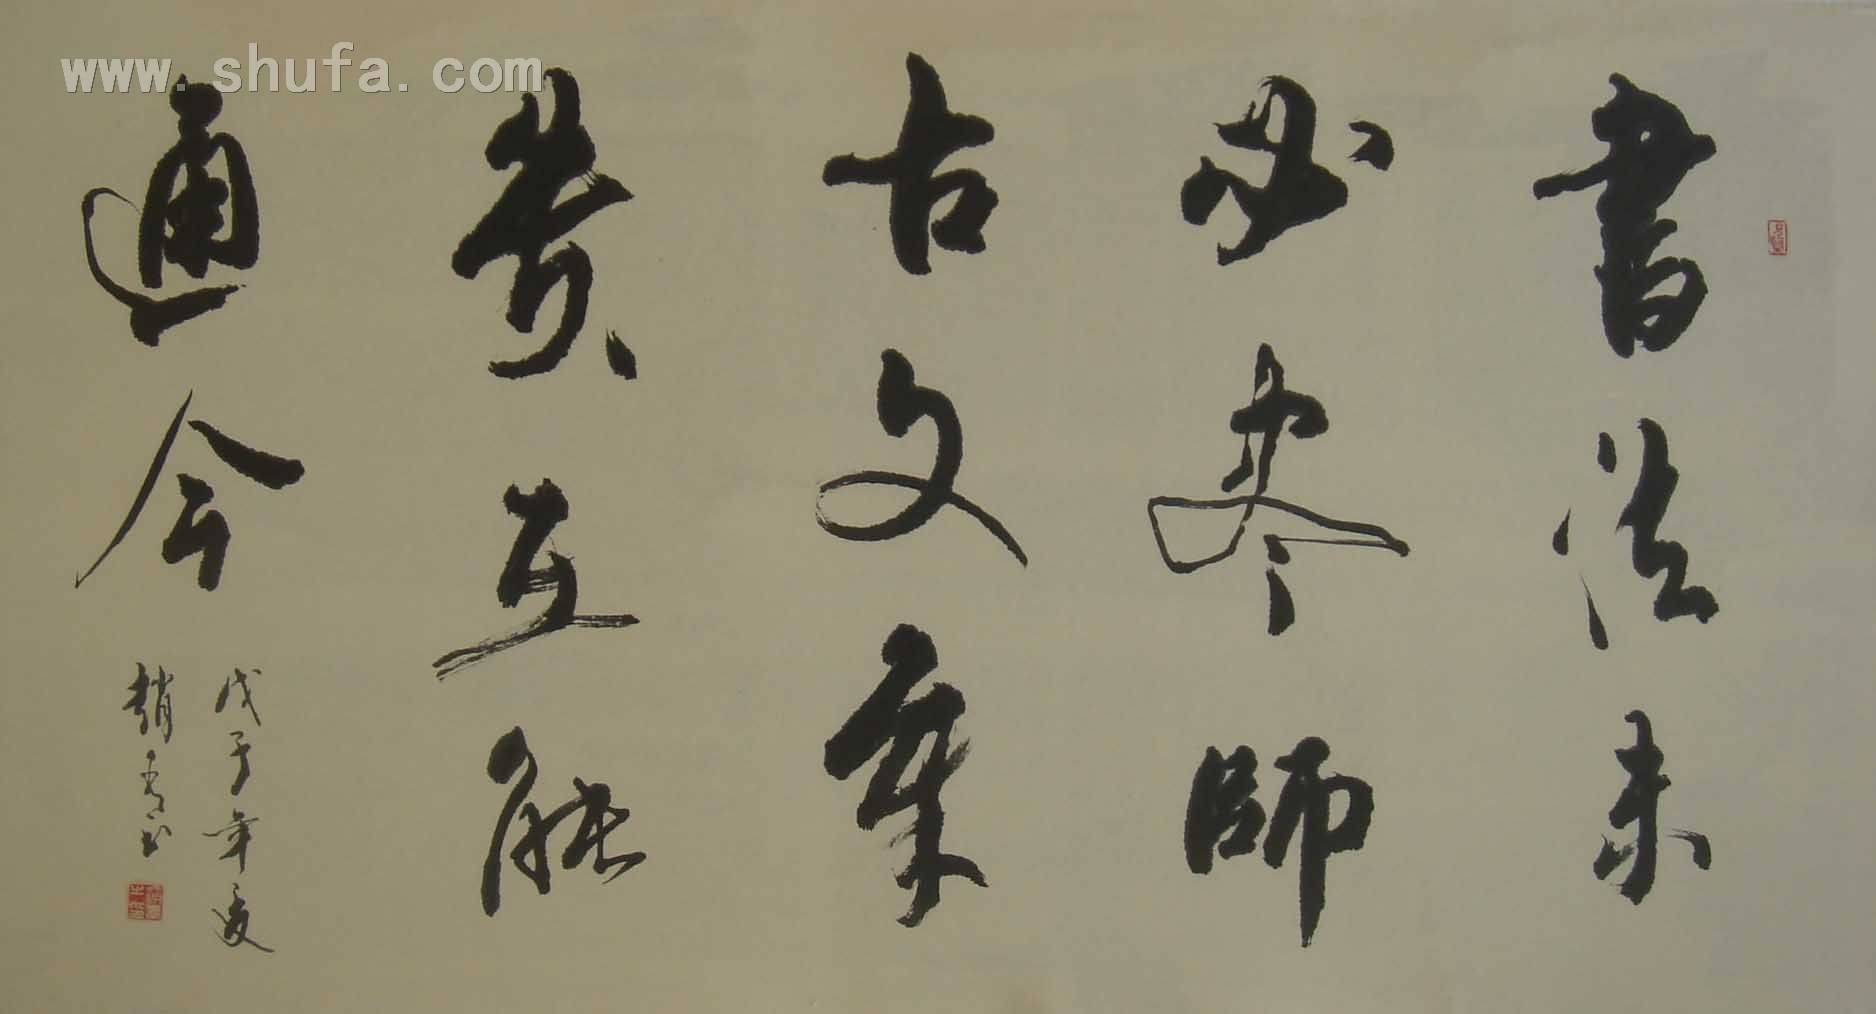 www.shufa.com
書法未
必尽師
古文章
貴互能
通今
戊子年夏
趙